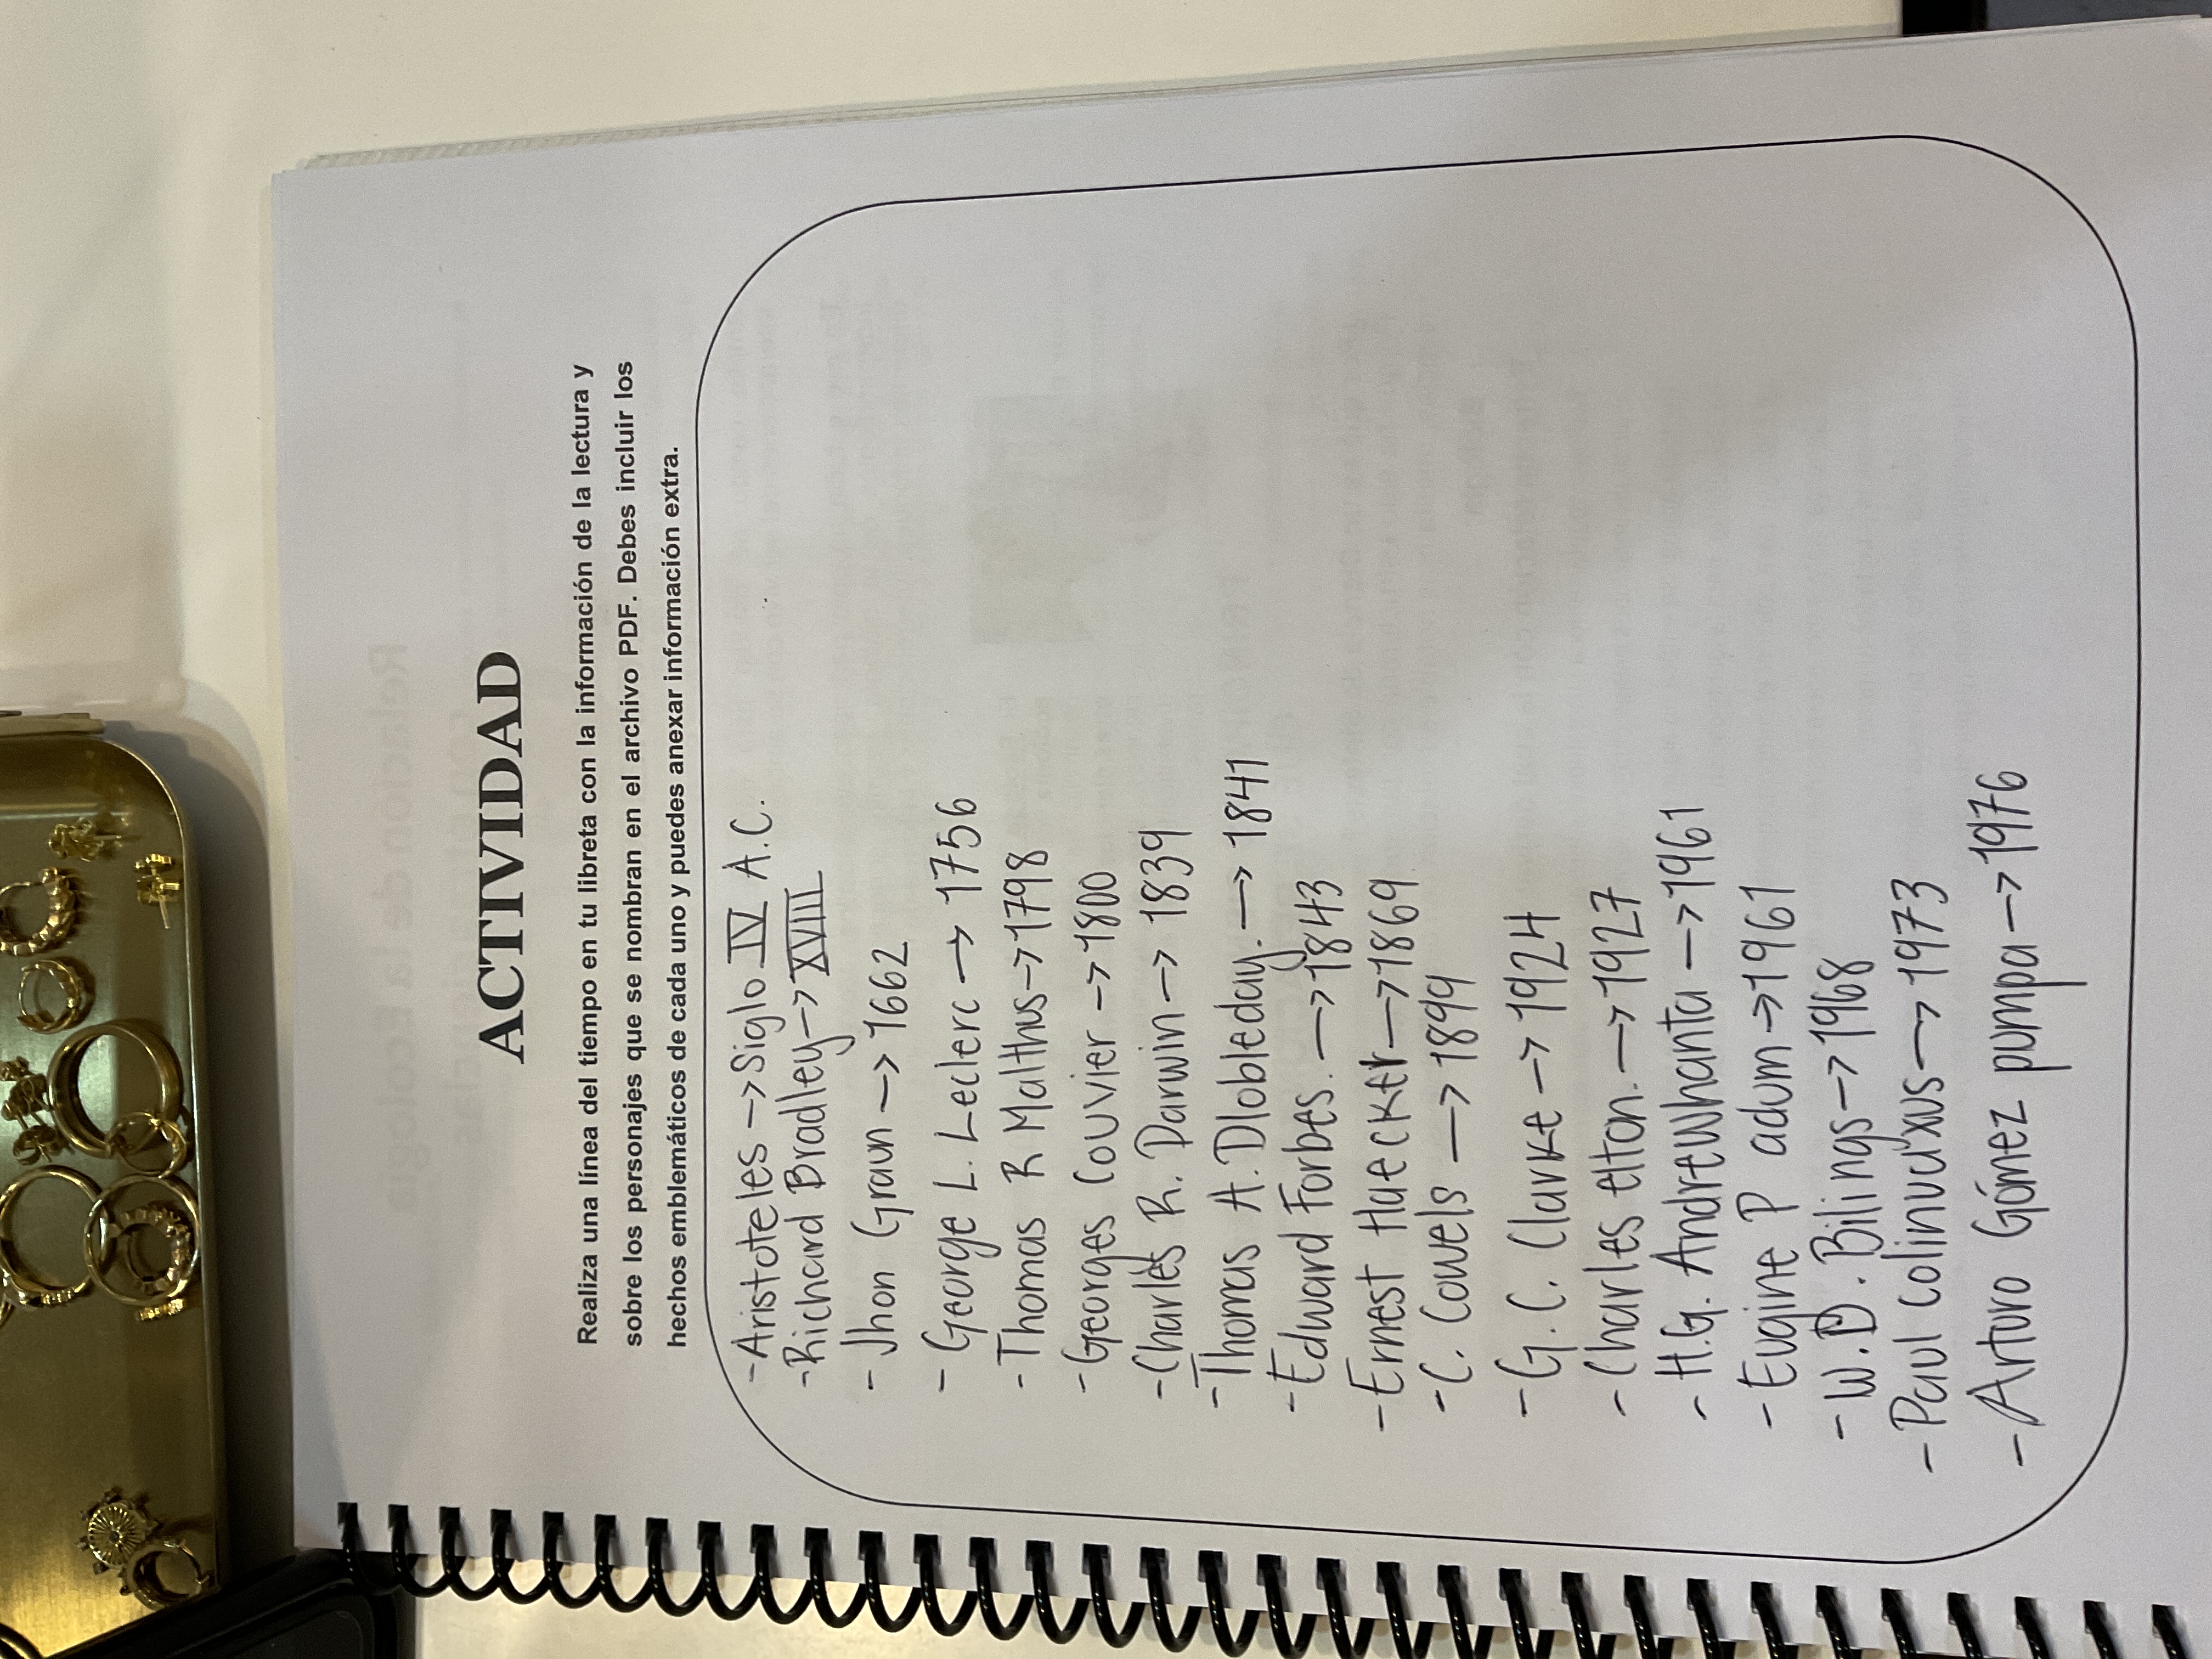 ACTIVIDAD
Realiza una línea del tiempo en tu libreta con la información de la lectura y
sobre los personajes que se nombran en el archivo PDF. Debes incluir los
hechos emblemáticos de cada uno y puedes anexar información extra.
-Aristoteles -> Siglo IV A.C.
-Richard Bradley -> XVIII
- Jhon Graun -> 1662
- George L. Leclerc -> 1756
-Thomas R Malthus -> 1798
-Georges Couvier -> 1800
-Charles R. Darwin -> 1839
-Thomas A. Dlobleday. -> 1841
-Edward Forbes. -> 1843
-Ernest Haecker -> 1869
-C. Cowels -> 1899
-G. C. Clarke -> 1924
-Charles elton. -> 1927
-H.G. Andrewhanta -> 1961
-Eugine P adum -> 1961
-W.D. Bilings -> 1968
-Paul colinvuixus -> 1973
-Arturo Gónez pumpa -> 1976